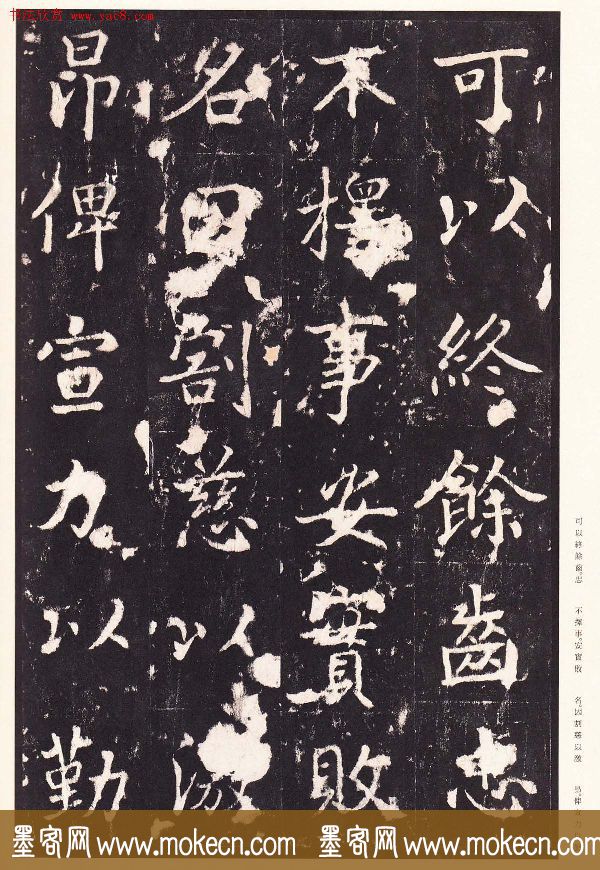 www.yac8.com
可以終餘齒忠
不擇事安實敗
名因割慈以激
昂俾宣力以勤
可以終餘齒。忠
不擇事。安實敗
名。因割慈以激
昂。俾宣力
墨客网 www.mokecn.com 墨客网 www.mokecn.com